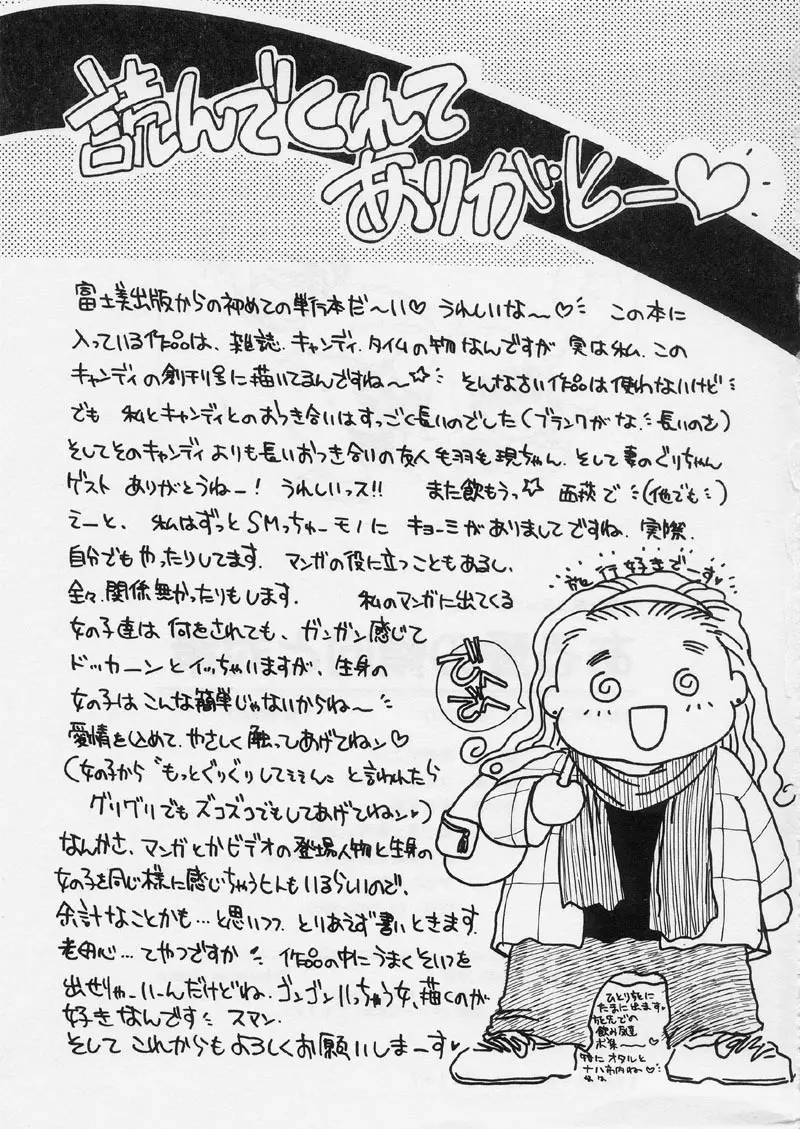 読んでくれて
ありがとー♡
富士美出版からの初めての単行本だ〜い♡ うれしいな〜♡ この本に
入っている作品は、雑誌・キャンディ・タイムの物なんですが 実は私、この
キャンディの創刊号に描いてるんですね〜☆ そんな古い作品は使わないけど
でも 私とキャンディとのおつき合いはすっごく長いのでした(ブランクがな、長いのさ)
そしてそのキャンディよりも長いおつき合いの友人 毛羽毛現ちゃん、そして妻のぐりちゃん
ゲスト ありがとうねー! うれしいっス!! また飲もうっ☆ 西荻で (他でも)
えーと、私はずっとSMっちゅーモノに キョーミがありましてですね、実際、
自分でもやったりしてます。マンガの役に立つこともあるし、
全々、関係無かったりもします。 私のマンガに出てくる
女の子達は何をされても、ガンガン感じて
ドッカーンとイッちゃいますが、生身の
女の子はこんな簡単じゃないからね〜
愛情を込めて、やさしく触ってあげてねン♡
(女の子から〝もっとぐりぐりして と言われたら
グリグリでもズコズコでもしてあげてねン♥)
なんかさ、マンガとかビデオの登場人物と生身の
女の子を同じ様に感じちゃうヒトもいるらしいので、
余計なことかも…と思いつつ、とりあえず書いときます。
老婆心…てやつですか 作品の中にうまくそいつを
出せりゃーいーんだけどね、ゴンゴンいっちゃう女、描くのが
好きなんです スマン。
そして これからもよろしくお願いしまーす♥
旅行好きでーす♥
ひとりちとに
たまに出ます♥
旅先での
飲み友達
ボ集〜♡
特にオタルと